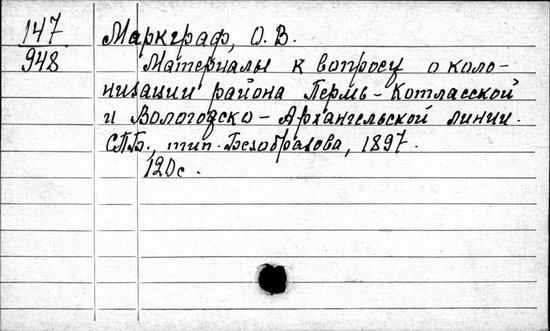 147
948
Маркграф, О. В.
Материалы к вопросу о коло-
низации района Пермь-Котласской
и Вологодско-Архангельской линии.
СПБ., тип. Безобразова, 1897.
120 с.